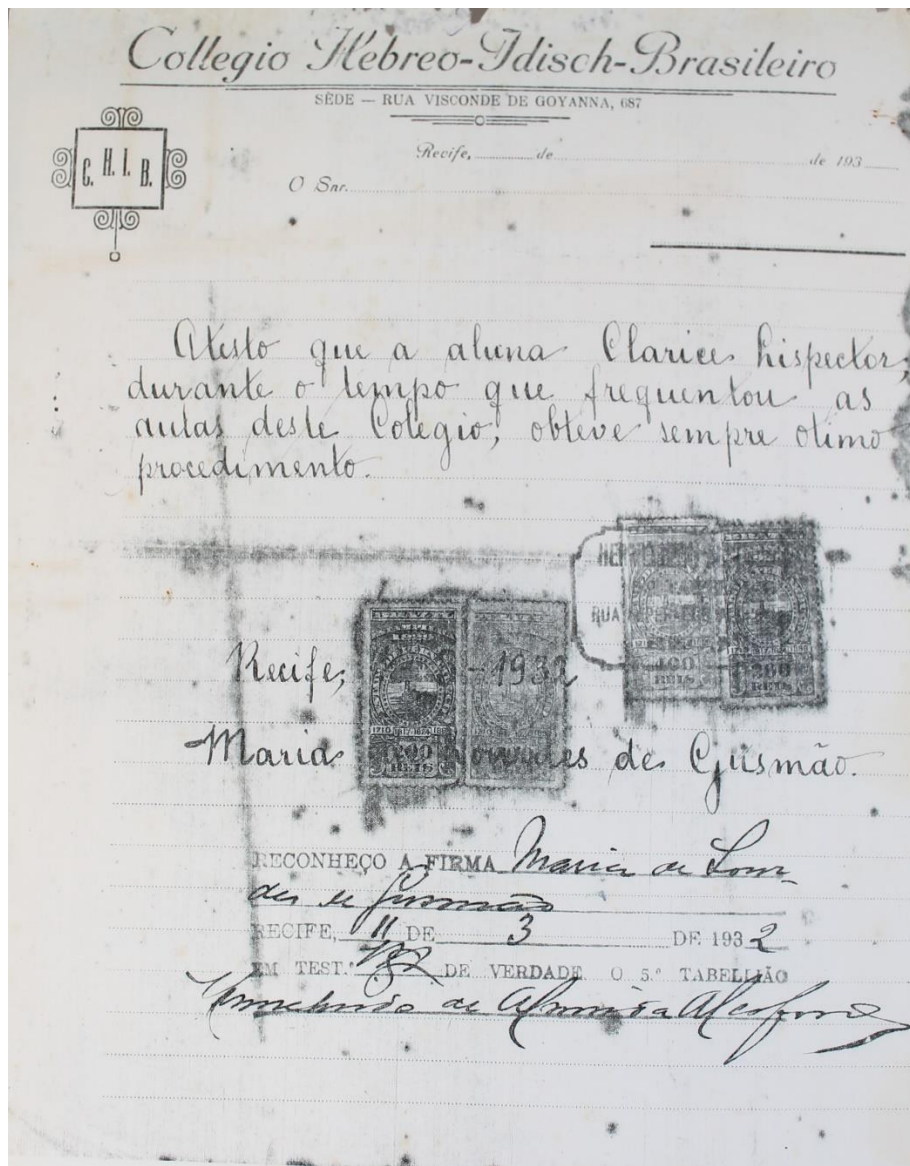 Collegio Hebreo-Idisch-Brasileiro
SÉDE — RUA VISCONDE DE GOYANNA, 687
C. H. I. B.
Recife, de de 193
O Snr.
Atesto que a aluna Clarice Lispector,
durante o tempo que frequentou as
aulas deste Colegio, obteve sempre otimo
procedimento.
RUA
100
REIS
200
REIS
Recife, 1932
1710 1817 1824 1889
200
REIS
Maria Lourdes de Gusmão.
RECONHEÇO A FIRMA Maria de Lour-
des de Gusmão
RECIFE, 11 DE 3 DE 1932
EM TEST.º DE VERDADE O 5.º TABELLIÃO
de Almeida